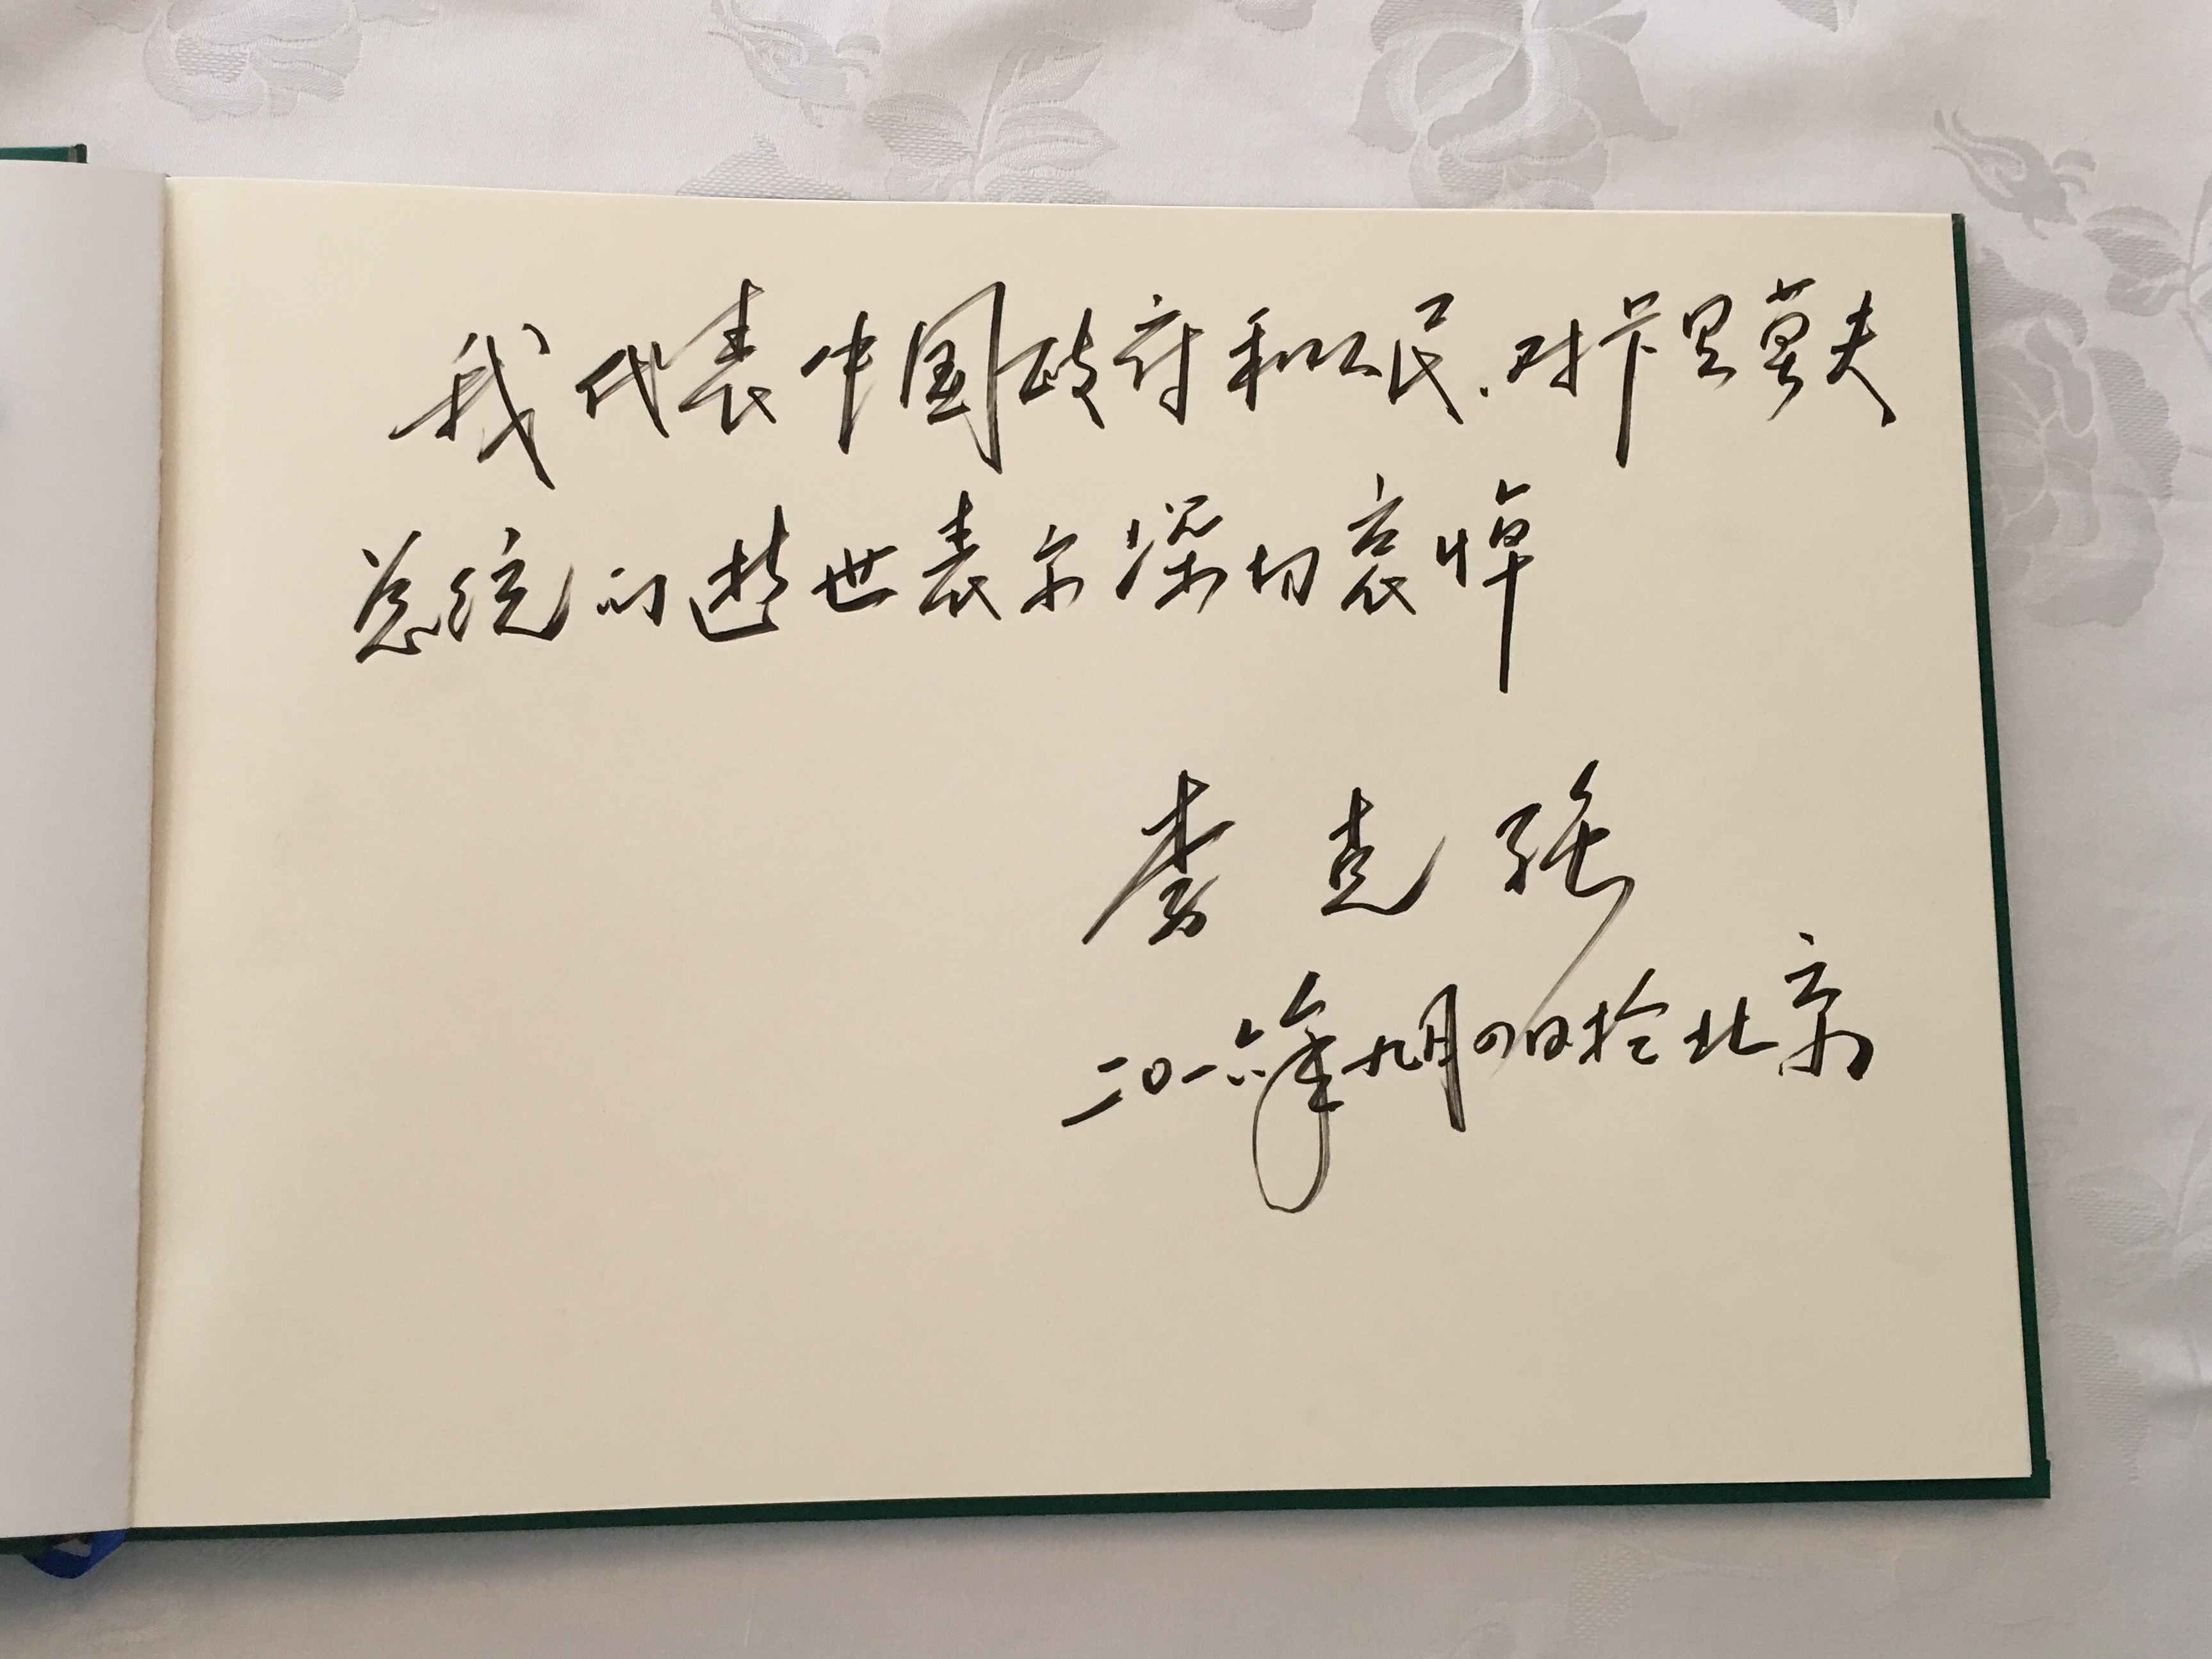 我代表中国政府和人民,对卡里莫夫
总统的逝世表示深切哀悼
李克强
二〇一六年九月四日于北京